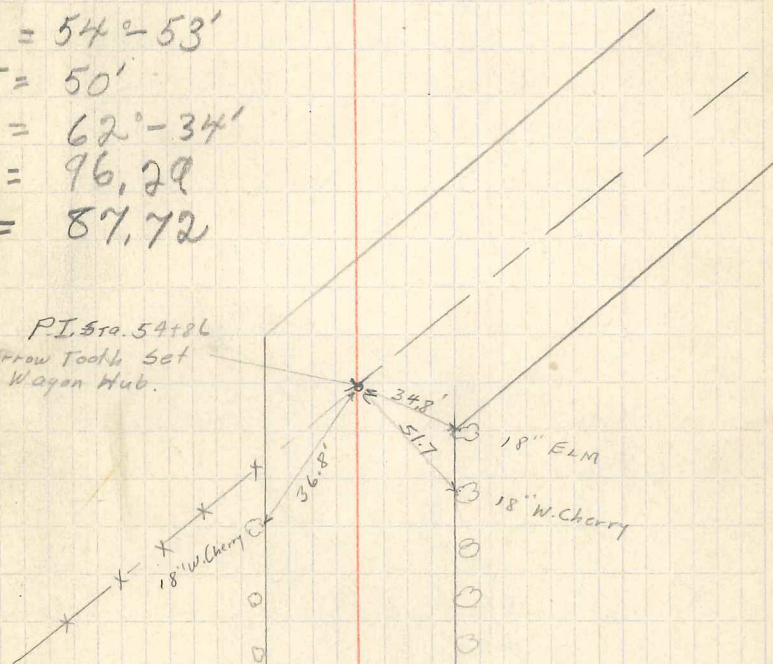 = 54°-53'
= 50'
= 62°-34'
= 96.29
= 87.72
P.I. Sta. 54+86
Tooth Set
Wagon Hub.
34.8'
51.7
36.8'
18" ELM
18" W. Cherry
18" W. Cherry